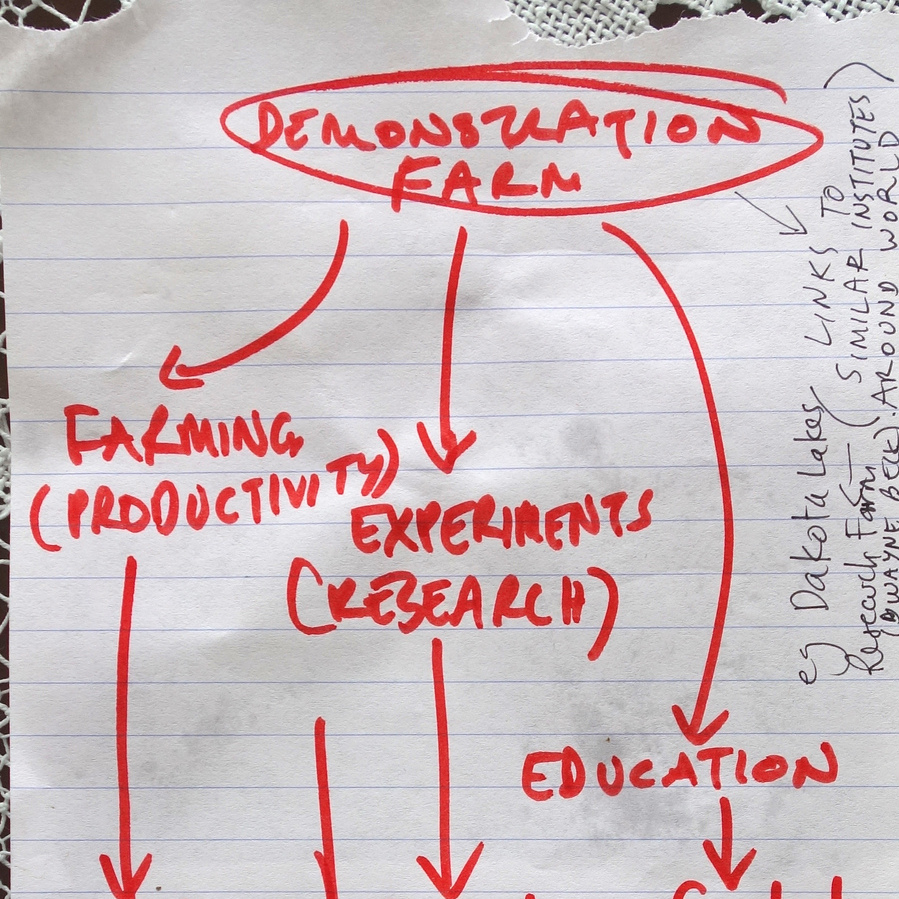 DEMONSTRATION
FARM
FARMING
(PRODUCTIVITY)
EXPERIMENTS
(RESEARCH)
EDUCATION
LINKS TO
(SIMILAR INSTITUTES)
AROUND WORLD
eg Dakota Lakes
Research Farm
(DWAYNE BECK).